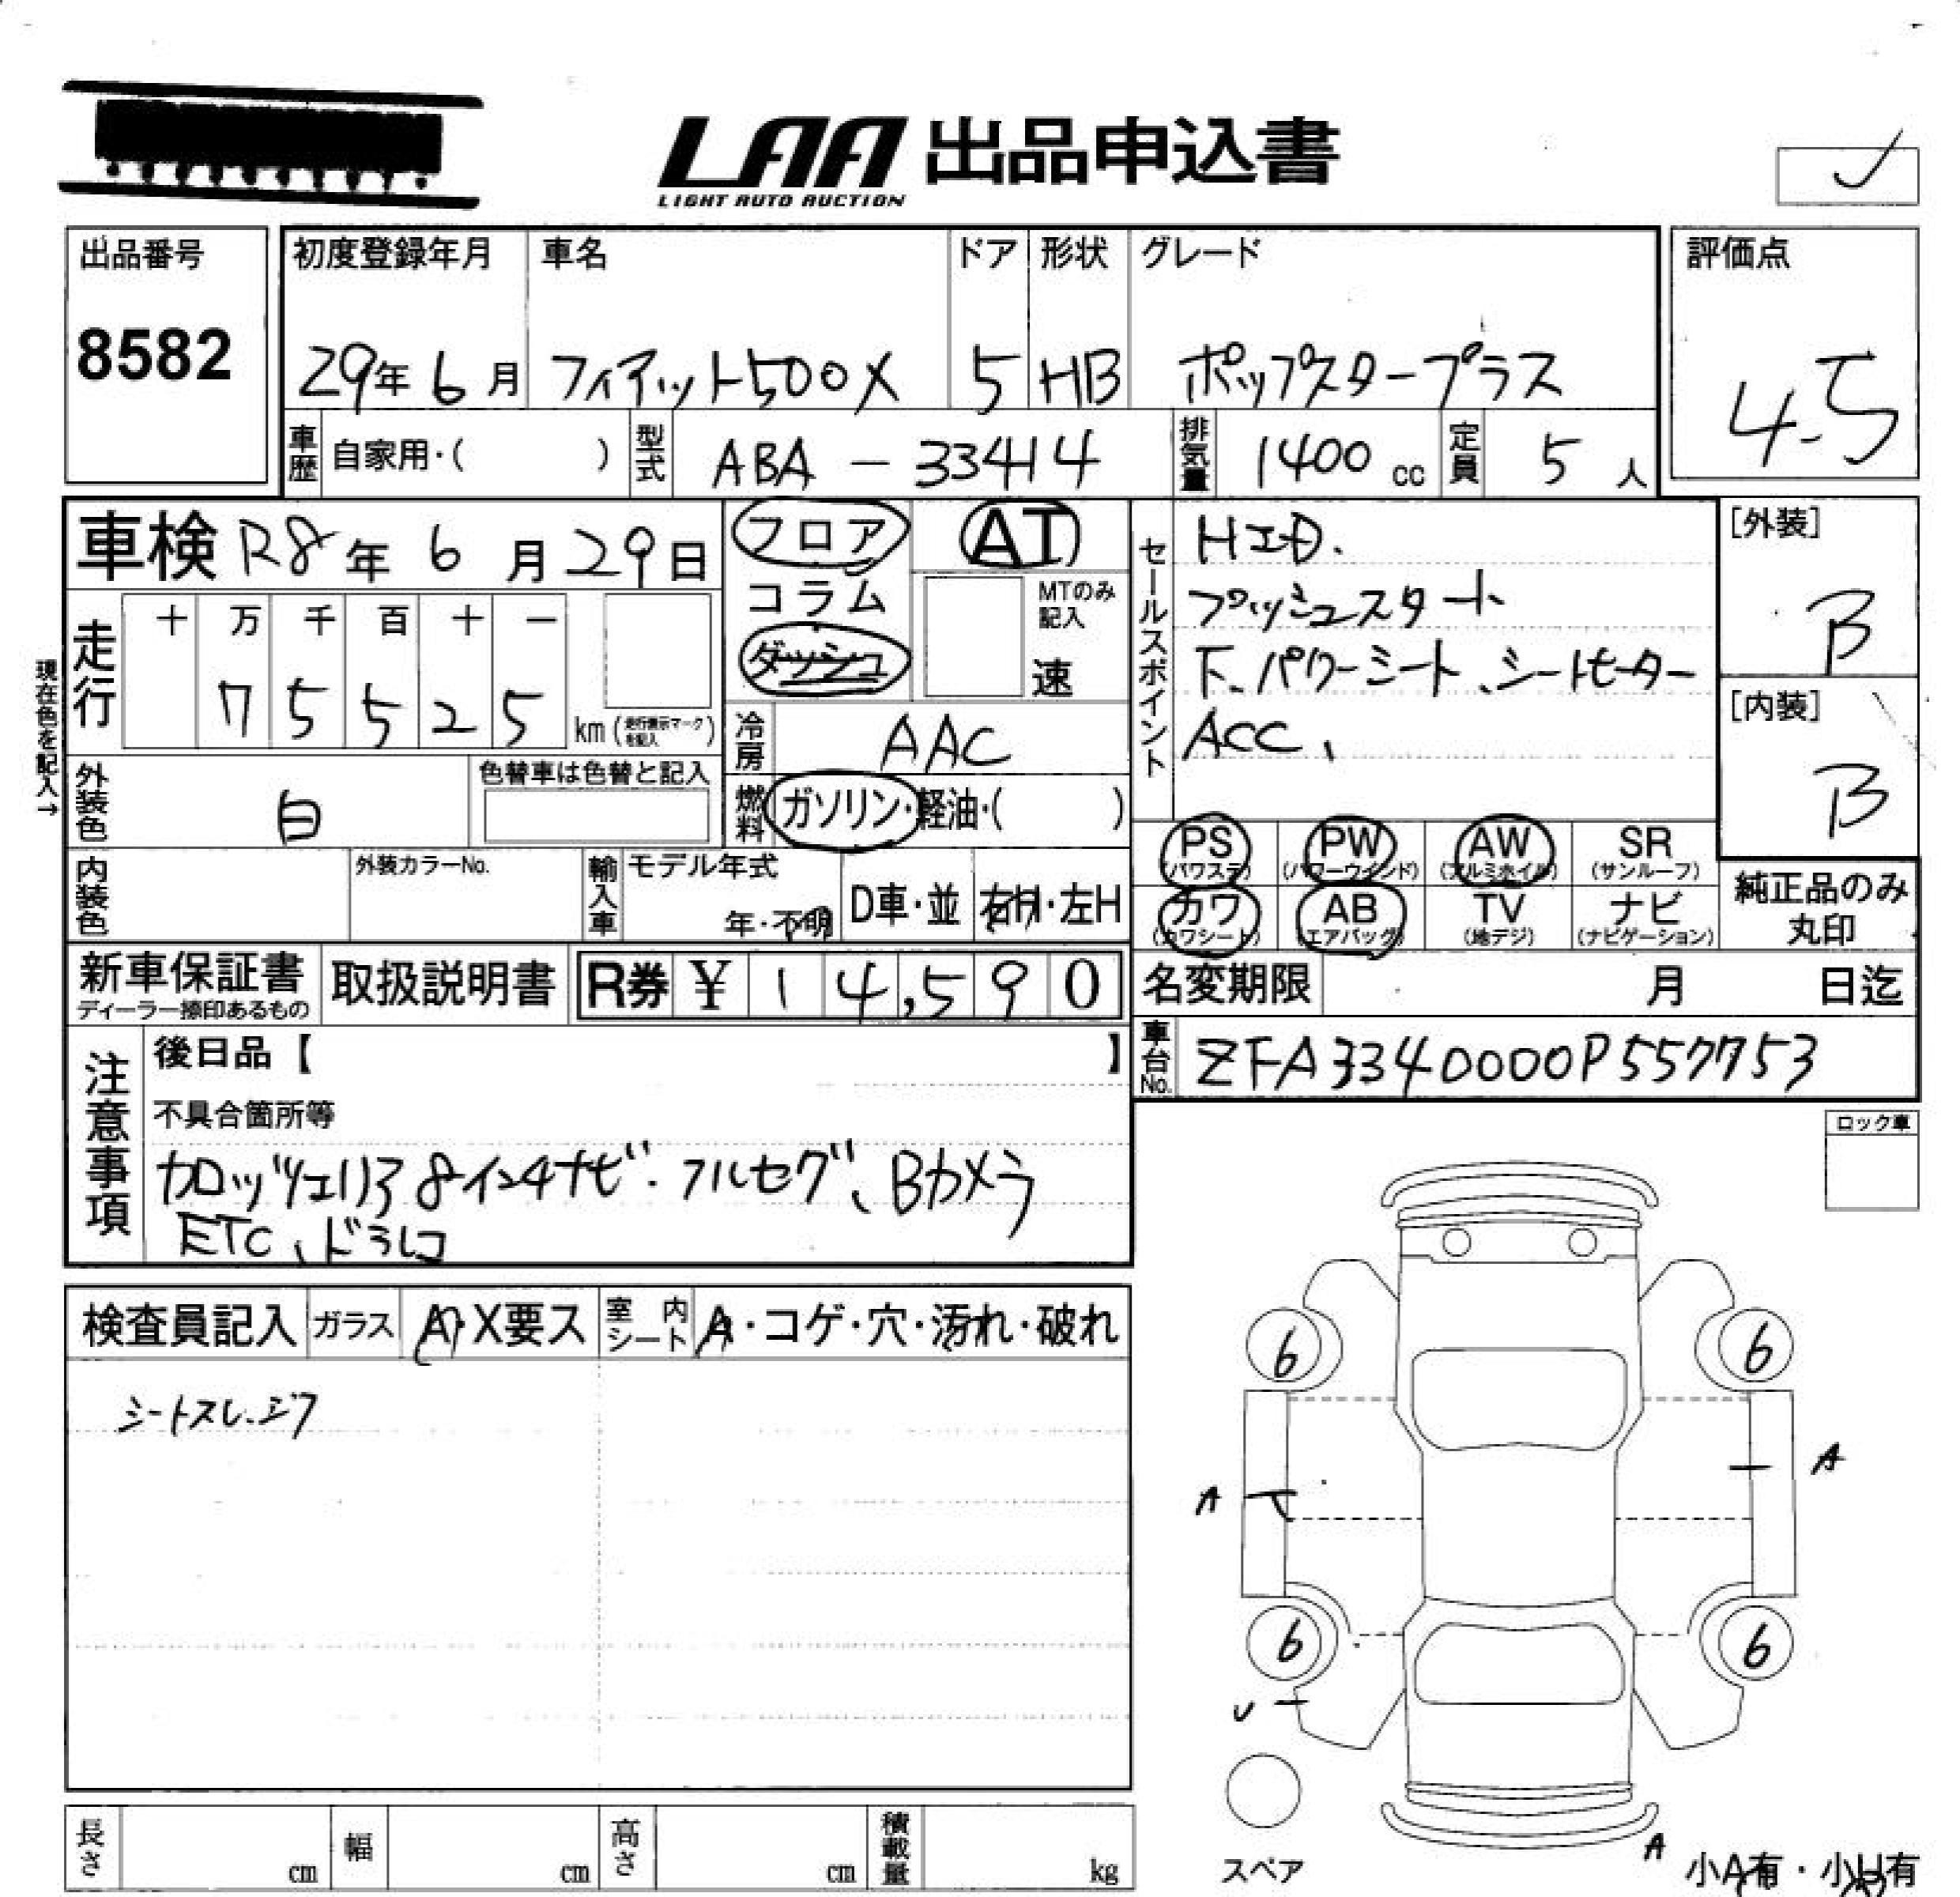 LAA 出品申込書
LIGHT AUTO AUCTION
出品番号
8582
初度登録年月
29年 6月
車名
フィアット500X
ドア
5
形状
HB
グレード
ポップスタープラス
評価点
4.5
車歴 自家用・( )
型式 ABA-33414
排気量 1400 cc
定員 5 人
車検 R8年 6月 29日
現在色を記入→
走行
十 万 千 百 十 一
7 5 5 2 5
km (走行表示マークを記入)
フロア
コラム
ダッシュ
AT
MTのみ記入
速
冷房 AAC
燃料 ガソリン・軽油・( )
外装色 白
色替車は色替と記入
内装色
外装カラーNo.
輸入車
モデル年式
年・不明
D車・並
右H・左H
セールスポイント
HID.
プッシュスタート
下、パワーシート、シートヒーター
ACC、
[外装]
B
[内装]
B
PS (パワステ)
PW (パワーウインド)
AW (アルミホイル)
SR (サンルーフ)
カワ (カワシート)
AB (エアバッグ)
TV (地デジ)
ナビ (ナビゲーション)
純正品のみ
丸印
新車保証書
ディーラー捺印あるもの
取扱説明書
R券 ¥ 14,590
名変期限 月 日迄
車台No. ZFA3340000P557753
注意事項
後日品【 】
不具合箇所等
カロッツェリア8インチナビ・フルセグ、Bカメラ
ETC、ドラレコ
ロック車
検査員記入
ガラス A・X要ス
室内シート A・コゲ・穴・汚れ・破れ
シートスレ、シワ
6 6
A
A
6 6
U
スペア
A
小A有・小U有
長さ cm
幅 cm
高さ cm
積載量 kg